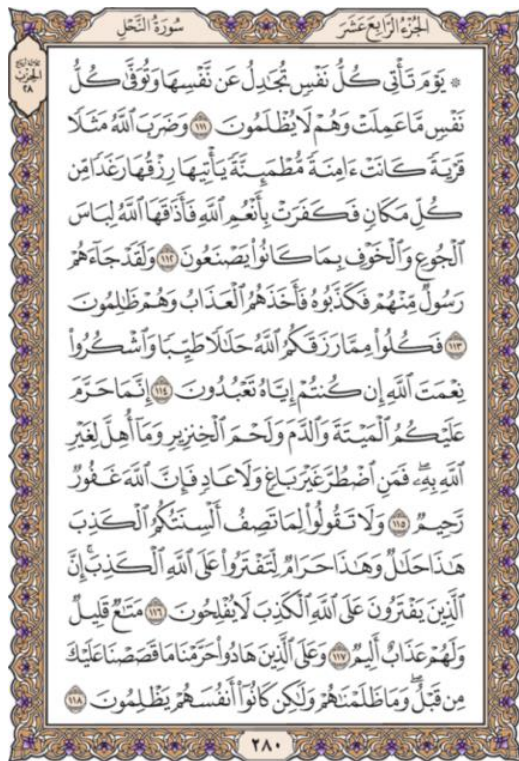 الجُزْءُ الرَّابِعَ عَشَرَ
سُورَةُ النَّحْلِ
الحِزْبِ
٢٨
۞ يَوْمَ تَأْتِي كُلُّ نَفْسٍ تُجَٰدِلُ عَن نَّفْسِهَا وَتُوَفَّىٰ كُلُّ
نَفْسٍ مَّا عَمِلَتْ وَهُمْ لَا يُظْلَمُونَ ١١١ وَضَرَبَ ٱللَّهُ مَثَلًا
قَرْيَةً كَانَتْ ءَامِنَةً مُّطْمَئِنَّةً يَأْتِيهَا رِزْقُهَا رَغَدًا مِّن
كُلِّ مَكَانٍ فَكَفَرَتْ بِأَنْعُمِ ٱللَّهِ فَأَذَٰقَهَا ٱللَّهُ لِبَاسَ
ٱلْجُوعِ وَٱلْخَوْفِ بِمَا كَانُوا۟ يَصْنَعُونَ ١١٢ وَلَقَدْ جَآءَهُمْ
رَسُولٌ مِّنْهُمْ فَكَذَّبُوهُ فَأَخَذَهُمُ ٱلْعَذَابُ وَهُمْ ظَٰلِمُونَ
١١٣ فَكُلُوا۟ مِمَّا رَزَقَكُمُ ٱللَّهُ حَلَٰلًا طَيِّبًا وَٱشْكُرُوا۟
نِعْمَتَ ٱللَّهِ إِن كُنتُمْ إِيَّاهُ تَعْبُدُونَ ١١٤ إِنَّمَا حَرَّمَ
عَلَيْكُمُ ٱلْمَيْتَةَ وَٱلدَّمَ وَلَحْمَ ٱلْخِنزِيرِ وَمَآ أُهِلَّ لِغَيْرِ
ٱللَّهِ بِهِۦ ۖ فَمَنِ ٱضْطُرَّ غَيْرَ بَاغٍ وَلَا عَادٍ فَإِنَّ ٱللَّهَ غَفُورٌ
رَّحِيمٌ ١١٥ وَلَا تَقُولُوا۟ لِمَا تَصِفُ أَلْسِنَتُكُمُ ٱلْكَذِبَ
هَٰذَا حَلَٰلٌ وَهَٰذَا حَرَامٌ لِّتَفْتَرُوا۟ عَلَى ٱللَّهِ ٱلْكَذِبَ ۚ إِنَّ
ٱلَّذِينَ يَفْتَرُونَ عَلَى ٱللَّهِ ٱلْكَذِبَ لَا يُفْلِحُونَ ١١٦ مَتَٰعٌ قَلِيلٌ
وَلَهُمْ عَذَابٌ أَلِيمٌ ١١٧ وَعَلَى ٱلَّذِينَ هَادُوا۟ حَرَّمْنَا مَا قَصَصْنَا عَلَيْكَ
مِن قَبْلُ ۖ وَمَا ظَلَمْنَٰهُمْ وَلَٰكِن كَانُوٓا۟ أَنفُسَهُمْ يَظْلِمُونَ ١١٨
٢٨٠